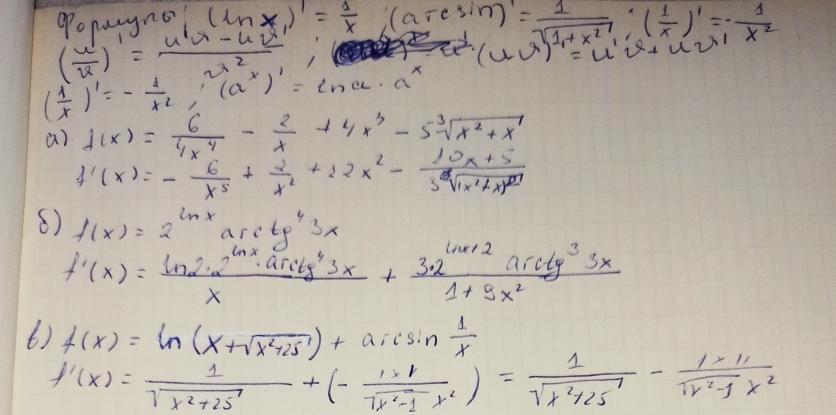 Формулы: (ln x)' = 1/x ; (arcsin)' = 1/√(1+x²) ; (1/x)' = -1/x²
(u/v)' = (u'v - uv')/v² ; (uv)' = u'v + uv'
(1/x)' = -1/x² ; (aˣ)' = ln a · aˣ
а) f(x) = 6/(4x⁴) - 2/x + 4x³ - 5∛(x²+x)
f'(x) = -6/x⁵ + 2/x² + 12x² - (10x+5)/(3∛((x²+x)²))
б) f(x) = 2^(ln x) arctg⁴ 3x
f'(x) = (ln 2 · 2^(ln x) · arctg⁴ 3x)/x + (3·2^(ln x+2) arctg³ 3x)/(1+9x²)
в) f(x) = ln(x+√(x²+25)) + arcsin 1/x
f'(x) = 1/√(x²+25) + (- |x|/(√(x²-1) x²)) = 1/√(x²+25) - |x|/(√(x²-1) x²)